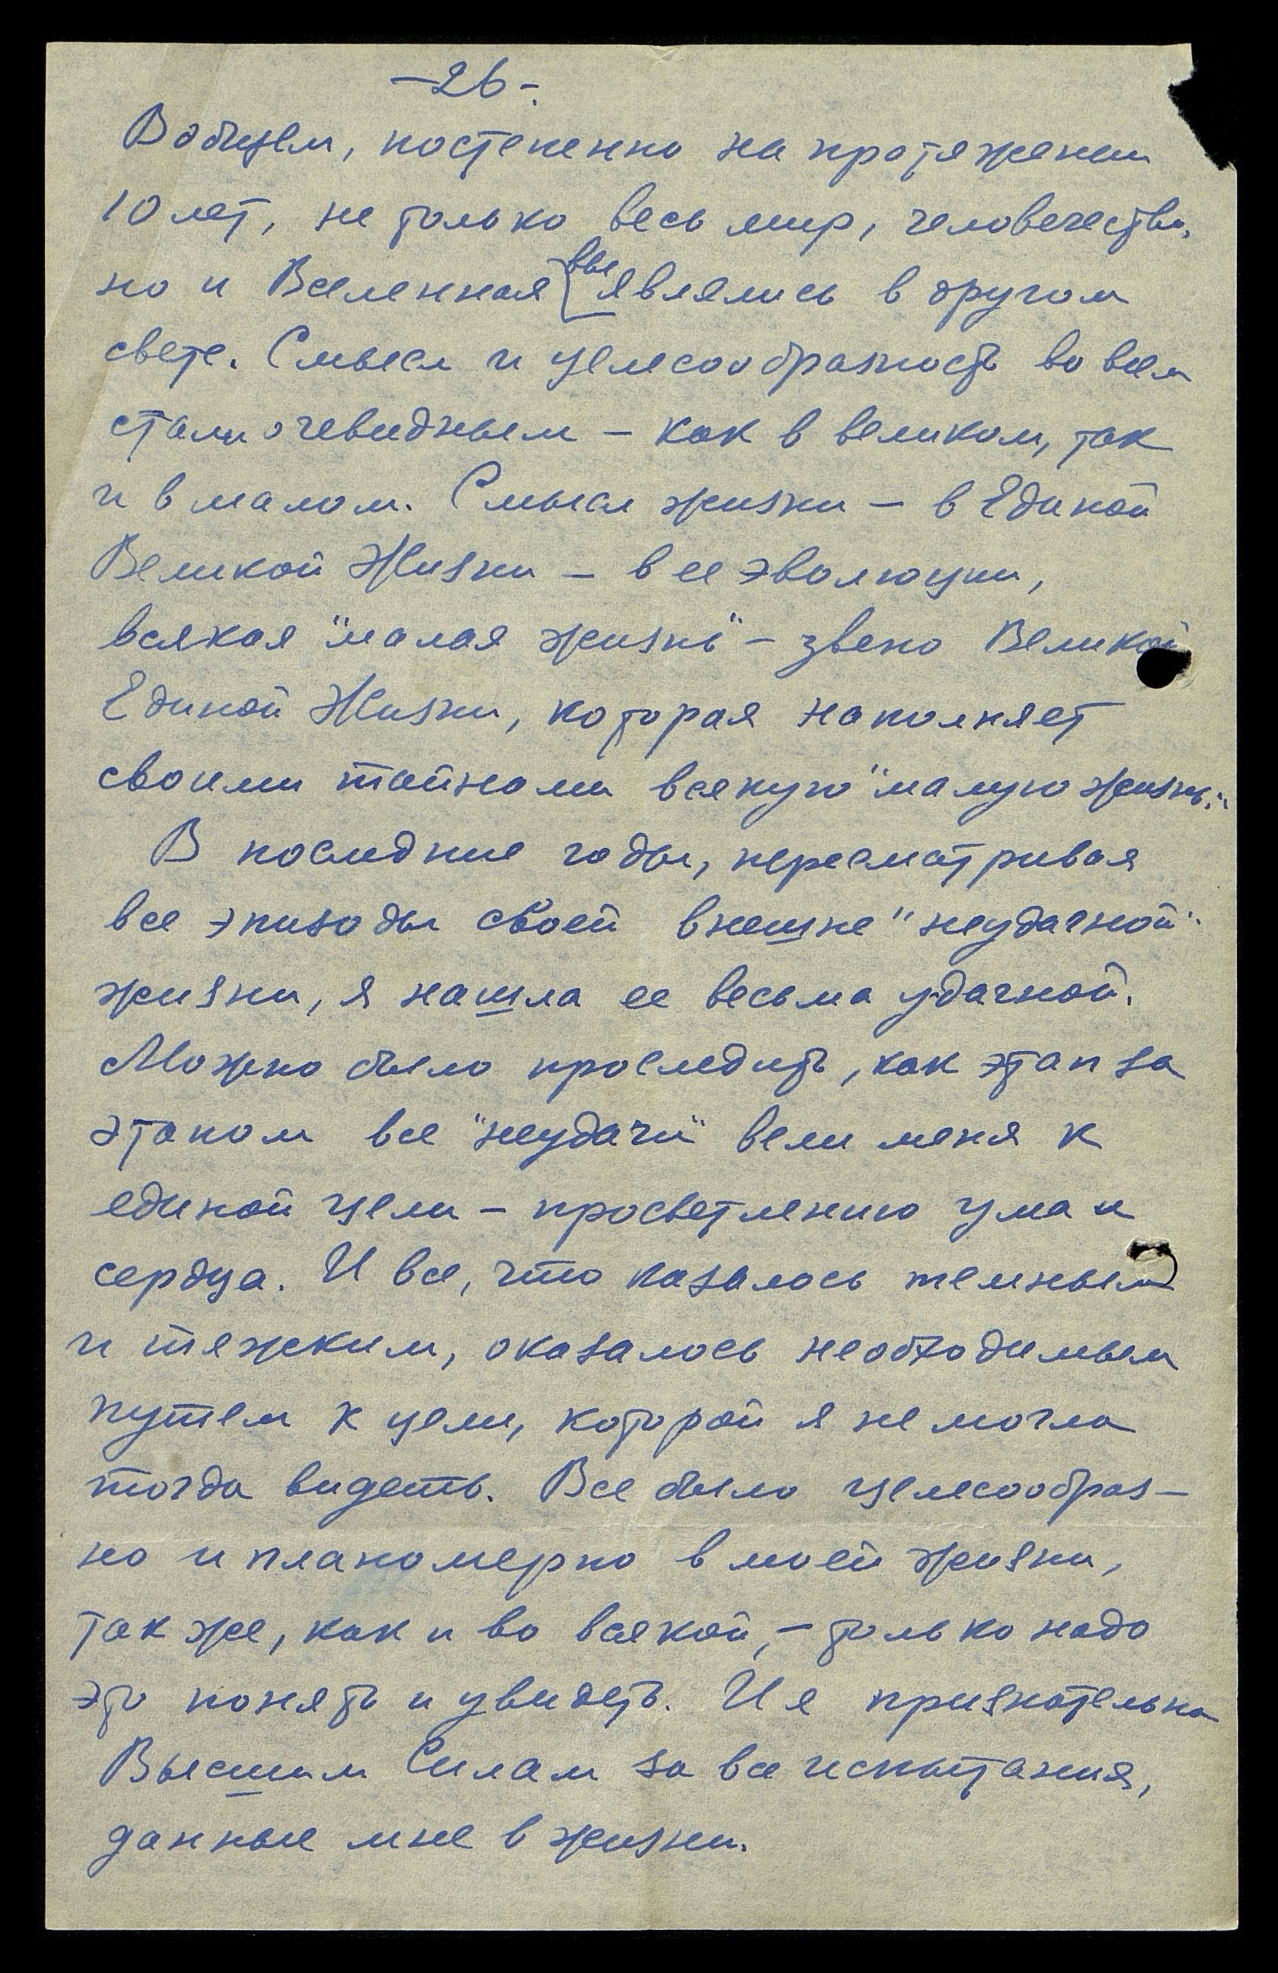 -26-.
Вобщем, постепенно на протяжении
10 лет, не только весь мир, человечество,
но и Вселенная выявлялись в другом
свете. Смысл и целесообразность во всем
стали очевидным – как в великом, так
и в малом. Смысл жизни – в Единой
Великой Жизни – в ее эволюции,
всякая "малая жизнь" – звено Великой
Единой Жизни, которая наполняет
своими тайнами всякую "малую жизнь."
В последние годы, пересматривая
все эпизоды своей внешне "неудачной"
жизни, я нашла ее весьма удачной.
Можно было проследить, как этап за
этапом все "неудачи" вели меня к
единой цели – просветлению ума и
сердца. И все, что казалось темным
и тяжким, оказалось необходимым
путем к цели, которой я не могла
тогда видеть. Все было целесообраз-
но и планомерно в моей жизни,
так же, как и во всякой, – только надо
это понять и увидеть. И я признательна
Высшим Силам за все испытания,
данные мне в жизни.